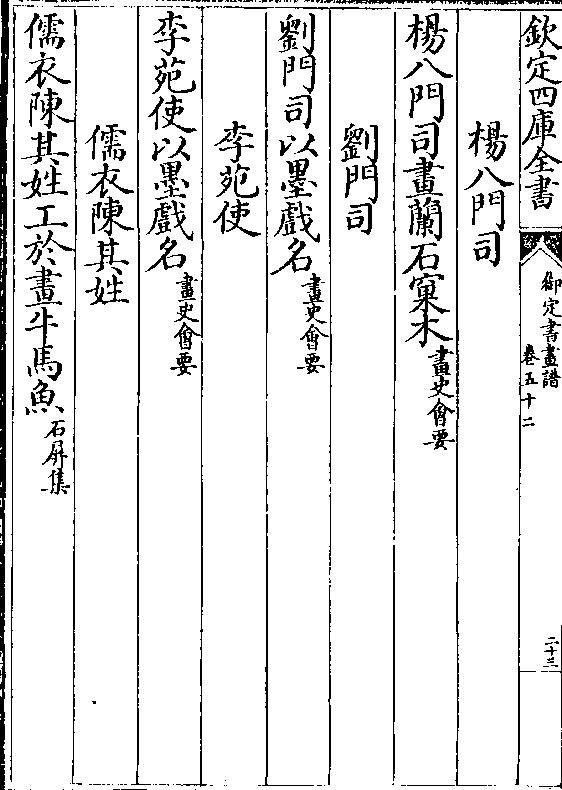 欽定四庫全書
御定書畫譜
卷五十二
二十三
楊八門司
楊八門司畫蘭石窠木畫史會要
劉門司
劉門司以墨戲名畫史會要
李苑使
李苑使以墨戲名畫史會要
儒衣陳其姓
儒衣陳其姓工於畫牛馬魚石屏集